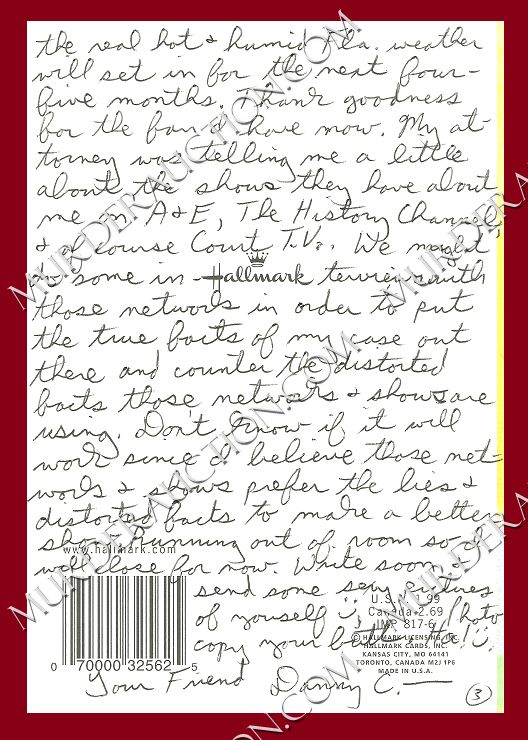 the real hot & humid Fla. weather
will set in for the next four-
five months. Thank goodness
for the fan I have now. My at-
torney was telling me a little
about the shows they have about
me on A & E, The History Channel,
& of course Court T.V.. We might
some in Hallmark with
those networks in order to put
the true facts of my case out
there and counter the distorted
facts those networks & shows are
using. Don't know if it will
work since I believe those net-
works & shows prefer the lies &
distorted facts to make a better
show. Running out of room so I
www.hallmark.com
will close for now. Write soon &
send some sexy pictures
U.S. 1.99
of yourself
Canada 2.69
IMP 817-6
Photo
copy your
© HALLMARK LICENSING, INC.
HALLMARK CARDS, INC.
KANSAS CITY, MO 64141
TORONTO, CANADA M2J 1P6
MADE IN U.S.A.
0 70000 32562 5
Your Friend Danny C.
3
MURDERAUCTION.COM